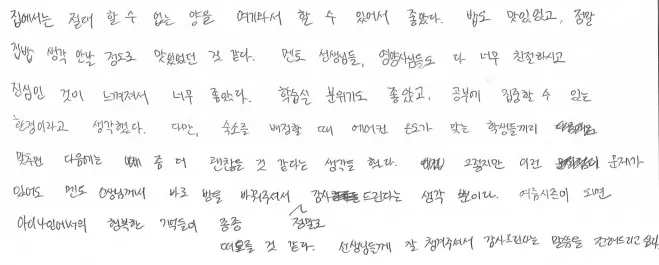 집에서는 절대 할 수 없는 양을 여기와서 할 수 있어서 좋았다. 밥도 맛있었고, 정말
집밥 생각 안날 정도로 맛있었던 것 같다. 멘토 선생님들, 영양사님들도 다 너무 친절하시고
진심인 것이 느껴져서 너무 좋았다. 학습실 분위기도 좋았고, 공부에 집중할 수 있는
환경이라고 생각했다. 다만, 숙소를 배정할 때 에어컨 온도가 맞는 학생들끼리
맞추면 다음에는 좀 더 괜찮을 것 같다는 생각을 했다. 그렇지만 이런 문제가
있어도 멘토 선생님께서 바로 방을 바꿔주셔서 감사드린다는 생각 뿐이다. 여름시즌이 되면
아이나인에서의 행복한 기억들이 종종 정말로
떠오를 것 같다. 선생님들께 잘 챙겨주셔서 감사드린다는 말씀을 전해드리고 싶다